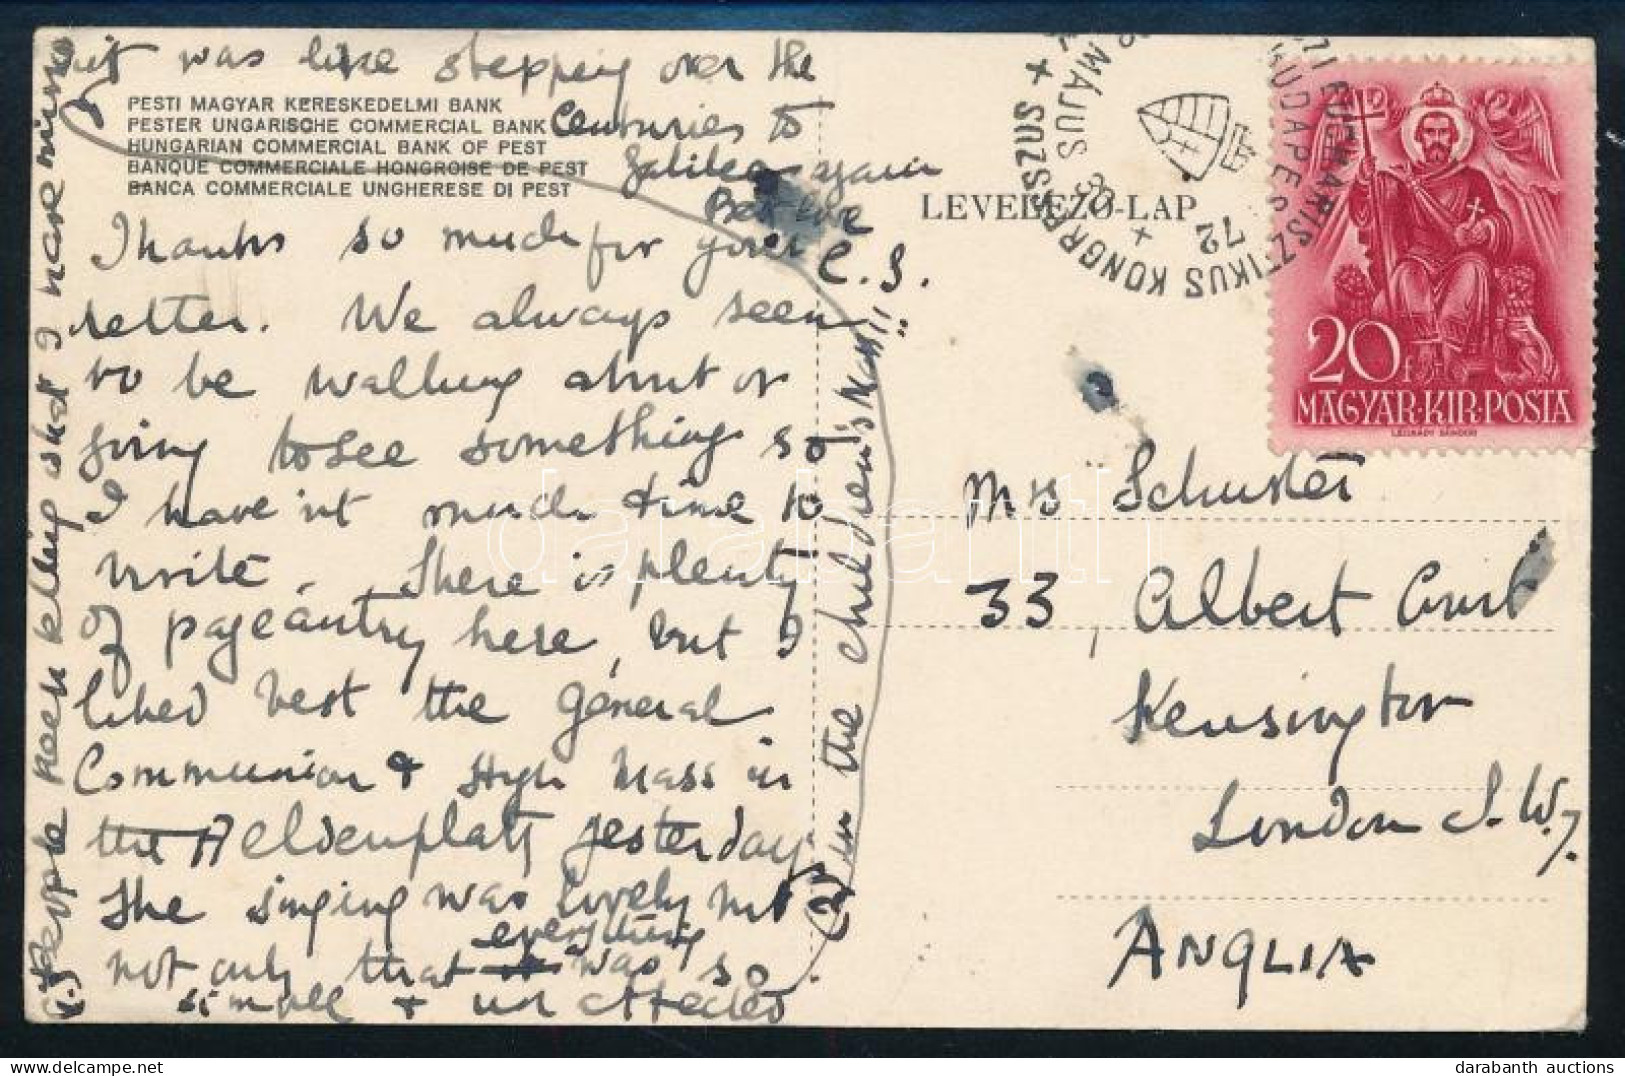 it was like stepping over the
Centuries to
Galilee again
Best love
C. S.
PESTI MAGYAR KERESKEDELMI BANK
PESTER UNGARISCHE COMMERCIAL BANK
HUNGARIAN COMMERCIAL BANK OF PEST
BANQUE COMMERCIALE HONGROISE DE PEST
BANCA COMMERCIALE UNGHERESE DI PEST
Thanks so much for your
letter. We always seem
to be walking about or
going to see something so
I haven't much time to
write. There is plenty
of pageantry here, but I
liked best the General
Communion & High Mass in
the Heldenplatz yesterday
The singing was lovely but
not only that everything was so
simple & unaffected
(in the children's Mass)
P.S. People keep asking and I
LEVELEZŐ-LAP
EUCHARISZTIKUS KONGRESSZUS
BUDAPEST
MÁJUS
72
20f
MAGYAR·KIR·POSTA
LEGRÁDY SÁNDOR
Mrs Schuster
33, Albert Court
Kensington
London S.W.7.
ANGLIA
darabanth
darabanth auctions